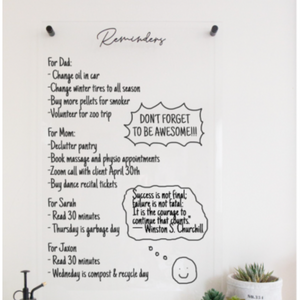 Reminders
For Dad:
- Change oil in car
- Change winter tires to all season
- Buy more pellets for smoker
- Volunteer for zoo trip
DON'T FORGET
TO BE AWESOME!!!
For Mom:
- Declutter pantry
- Book massage and physio appointments
- Zoom call with client April 30th
- Buy dance recital tickets
Success is not final;
failure is not fatal:
It is the courage to
continue that counts."
— Winston S. Churchill
For Sarah
- Read 30 minutes
- Thursday is garbage day
For Jaxon
- Read 30 minutes
- Wedneday is compost & recycle day